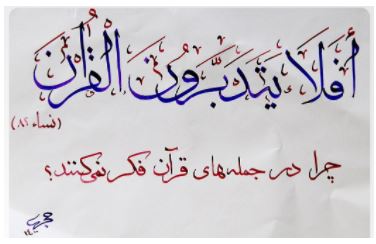 أَفَلَا يَتَدَبَّرُونَ الْقُرْآنَ
(نساء ۸۲)
چرا در جمله‌های قرآن فکر نمی‌کنند؟